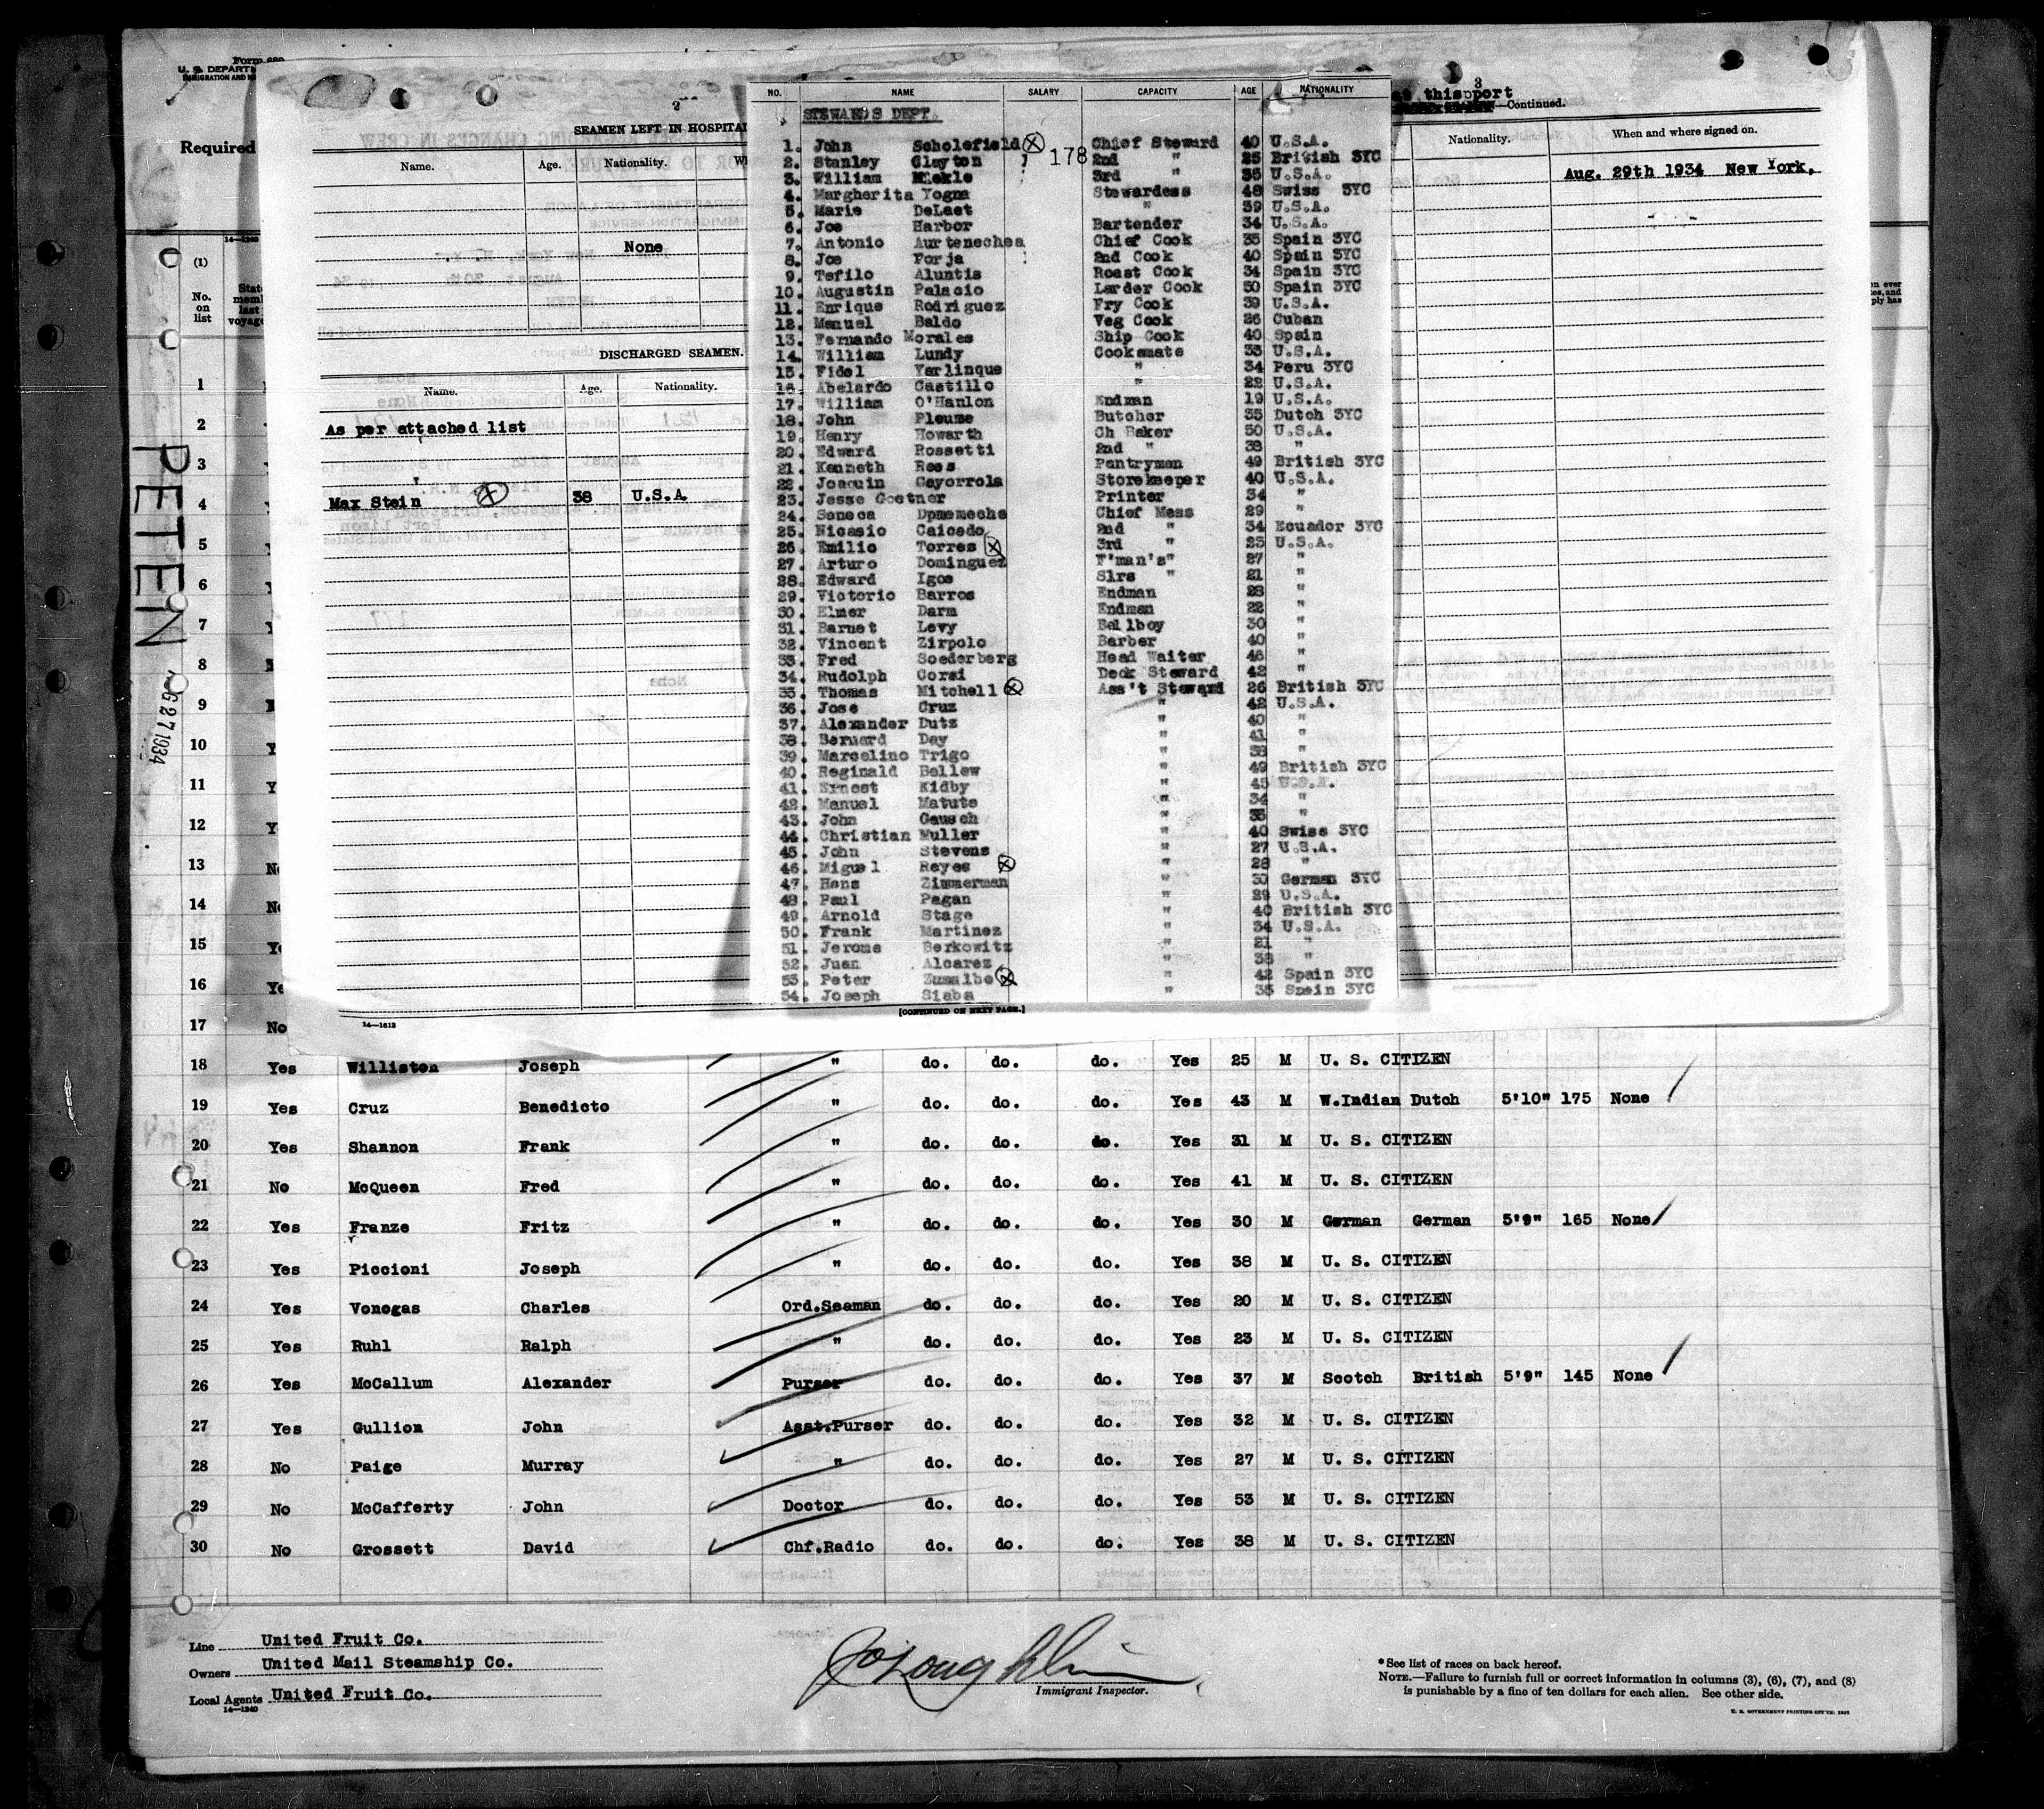 Form 689
U. S. DEPARTM
IMMIGRATION AND
Required
14—1240
(1)
No.
on
list
State
memb
last
voyage
PETEN
AUG 27 1934
2
SEAMEN LEFT IN HOSPITAL
Name. Age. Nationality.
None
DISCHARGED SEAMEN.
Name. Age. Nationality.
As per attached list
Max Stein 38 U.S.A.
14—1613
NO. NAME SALARY CAPACITY AGE NATIONALITY
STEWARDS DEPT.
178
1. John Scholefield Chief Steward 40 U.S.A.
2. Stanley Clayton 2nd " 25 British 3YC
3. William Miekle 3rd " 35 U.S.A.
4. Margherita Yogna Stewardess 48 Swiss 3YC
5. Marie DeLaet " 39 U.S.A.
6. Joe Harbor Bartender 34 U.S.A.
7. Antonio Aurtenechea Chief Cook 35 Spain 3YC
8. Joe Forja 2nd Cook 40 Spain 3YC
9. Tefilo Aluntis Roast Cook 34 Spain 3YC
10. Augustin Palacio Larder Cook 50 Spain 3YC
11. Enrique Rodriguez Fry Cook 39 U.S.A.
12. Manuel Baldo Veg Cook 26 Cuban
13. Fernando Morales Ship Cook 40 Spain
14. William Lundy Cooksmate 33 U.S.A.
15. Fidel Yarlinque " 34 Peru 3YC
16. Abelardo Castillo " 22 U.S.A.
17. William O'Hanlon Endman 19 U.S.A.
18. John Pleume Butcher 35 Dutch 3YC
19. Henry Howarth Ch Baker 50 U.S.A.
20. Edward Rossetti 2nd " 38 "
21. Kenneth Rees Pantryman 49 British 3YC
22. Joaquin Gayorrola Storekeeper 40 U.S.A.
23. Jesse Goetner Printer 34 "
24. Seneca Dpmemeche Chief Mess 29 "
25. Nicasio Caicedo 2nd " 34 Ecuador 3YC
26. Emilio Torres 3rd " 25 U.S.A.
27. Arturo Dominguez F'man's" 27 "
28. Edward Igoe Slrs " 21 "
29. Victorio Barros Endman 28 "
30. Elmer Darm Endman 22 "
31. Barnet Levy Bellboy 30 "
32. Vincent Zirpolo Barber 40 "
33. Fred Soederberg Head Waiter 46 "
34. Rudolph Corsi Deck Steward 42 "
35. Thomas Mitchell Ass't Steward 26 British 3YC
36. Jose Cruz " 42 U.S.A.
37. Alexander Dutz " 40 "
38. Bernard Day " 41 "
39. Marcelino Trigo " 38 "
40. Reginald Bellew " 49 British 3YC
41. Ernest Kidby " 45 U.S.A.
42. Manuel Matute " 34 "
43. John Gausch " 35 "
44. Christian Muller " 40 Swiss 3YC
45. John Stevens " 27 U.S.A.
46. Miguel Reyes " 28 "
47. Hans Zimmerman " 30 German 3YC
48. Paul Pagan " 29 U.S.A.
49. Arnold Stage " 40 British 3YC
50. Frank Martinez " 34 U.S.A.
51. Jerome Berkowitz " 21 "
52. Juan Alcarez " 38 "
53. Peter Zumalbe " 42 Spain 3YC
54. Joseph Siaba " 35 Spain 3YC
[CONTINUED ON NEXT PAGE.]
3
at this port
—Continued.
Nationality. When and where signed on.
Aug. 29th 1934 New York,
1
2
3
4
5
6
7
8
9
10
11
12
13
14
15
16
17 No
18 Yes Williston Joseph " do. do. do. Yes 25 M U. S. CITIZEN
19 Yes Cruz Benedicto " do. do. do. Yes 43 M W.Indian Dutch 5'10" 175 None
20 Yes Shannon Frank " do. do. do. Yes 31 M U. S. CITIZEN
21 No McQueen Fred " do. do. do. Yes 41 M U. S. CITIZEN
22 Yes Franze Fritz " do. do. do. Yes 30 M German German 5'9" 165 None
23 Yes Piccioni Joseph " do. do. do. Yes 38 M U. S. CITIZEN
24 Yes Vonogas Charles Ord.Seaman do. do. do. Yes 20 M U. S. CITIZEN
25 Yes Ruhl Ralph " do. do. do. Yes 23 M U. S. CITIZEN
26 Yes McCallum Alexander Purser do. do. do. Yes 37 M Scotch British 5'9" 145 None
27 Yes Gullion John Asst.Purser do. do. do. Yes 32 M U. S. CITIZEN
28 No Paige Murray " do. do. do. Yes 27 M U. S. CITIZEN
29 No McCafferty John Doctor do. do. do. Yes 53 M U. S. CITIZEN
30 No Grossett David Chf.Radio do. do. do. Yes 38 M U. S. CITIZEN
Line United Fruit Co.
Owners United Mail Steamship Co.
Local Agents United Fruit Co.
14—1240
Immigrant Inspector.
*See list of races on back hereof.
NOTE.—Failure to furnish full or correct information in columns (3), (6), (7), and (8)
is punishable by a fine of ten dollars for each alien. See other side.
U. S. GOVERNMENT PRINTING OFFICE: 1932